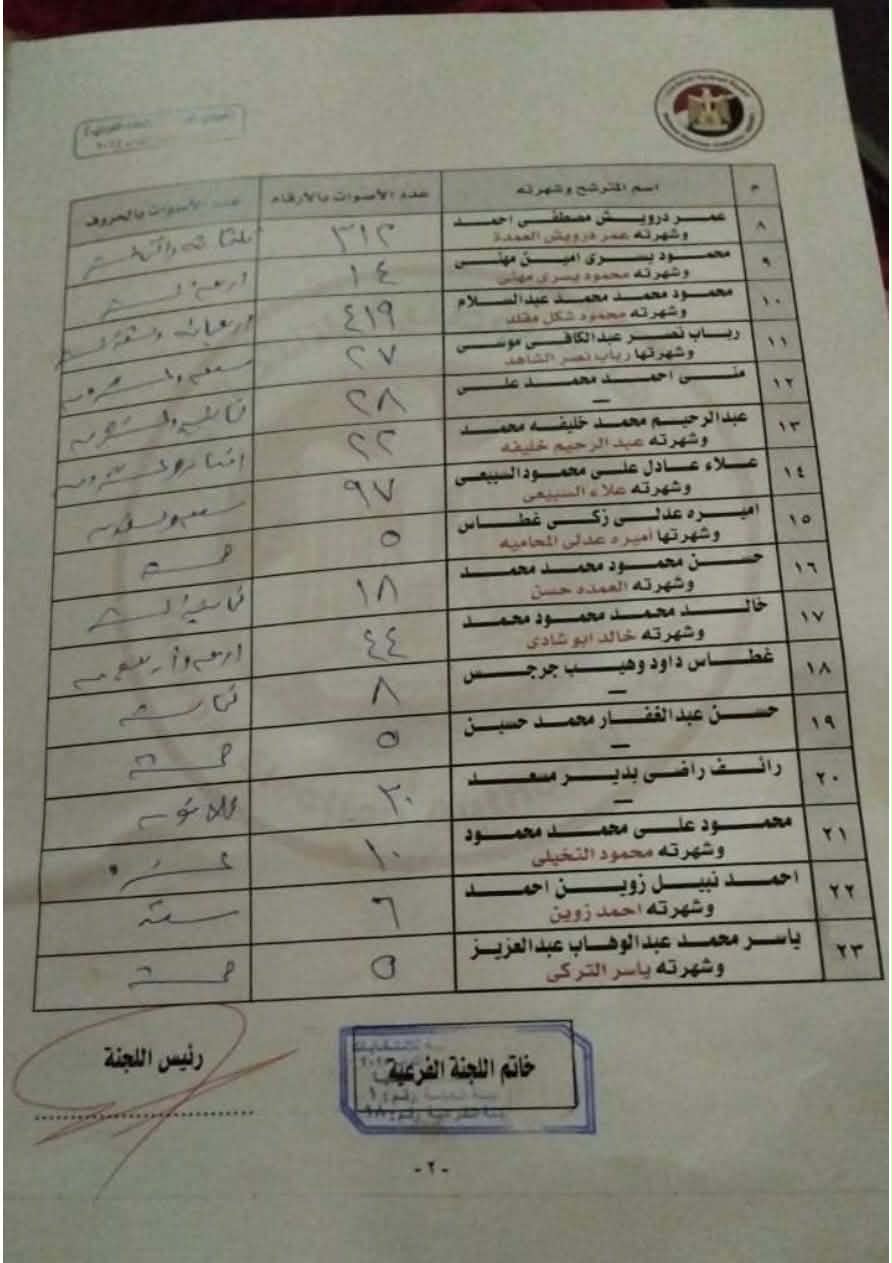 م اسم المترشح وشهرته عدد الأصوات بالأرقام عدد الأصوات بالحروف
٨ عمر درويش مصطفى احمد ٣١٢ ثلثمائة واثنا عشر
وشهرته عمر درويش العمدة
٩ محمود يسرى امين مهنى ١٤ اربعة عشر
وشهرته محمود يسرى مهنى
١٠ محمود محمد محمد عبدالسلام ٤١٩ اربعمائة وتسعة عشر
وشهرته محمود شكل مقلد
١١ رباب نصر عبدالكافى موسى ٢٧ سبعة وعشرون
وشهرتها رباب نصر الشاهد
١٢ منى احمد محمد على ٢٨ ثمانية وعشرون
—
١٣ عبدالرحيم محمد خليفه محمد ٢٢ اثنان وعشرون
وشهرته عبد الرحيم خليفه
١٤ علاء عادل على محمود السبيعى ٩٧ سبعة وتسعون
وشهرته علاء السبيعى
١٥ اميره عدلى زكى غطاس ٥ خمسة
وشهرتها اميره عدلى المحاميه
١٦ حسن محمود محمد محمد ١٨ ثمانية عشر
وشهرته العمده حسن
١٧ خالد محمد محمود محمد ٤٤ اربعة وأربعون
وشهرته خالد ابو شادى
١٨ غطاس داود وهيب جرجس ٨ ثمانية
—
١٩ حسن عبدالغفار محمد حسين ٥ خمسة
—
٢٠ رائف راضى بدير مسعد ٣٠ ثلاثون
—
٢١ محمود على محمد محمود ١٠ عشرة
وشهرته محمود النخيلى
٢٢ احمد نبيل زوين احمد ٦ ستة
وشهرته احمد زوين
٢٣ ياسر محمد عبدالوهاب عبدالعزيز ٥ خمسة
وشهرته ياسر التركى
خاتم اللجنة الفرعية رئيس اللجنة
- ٢ -